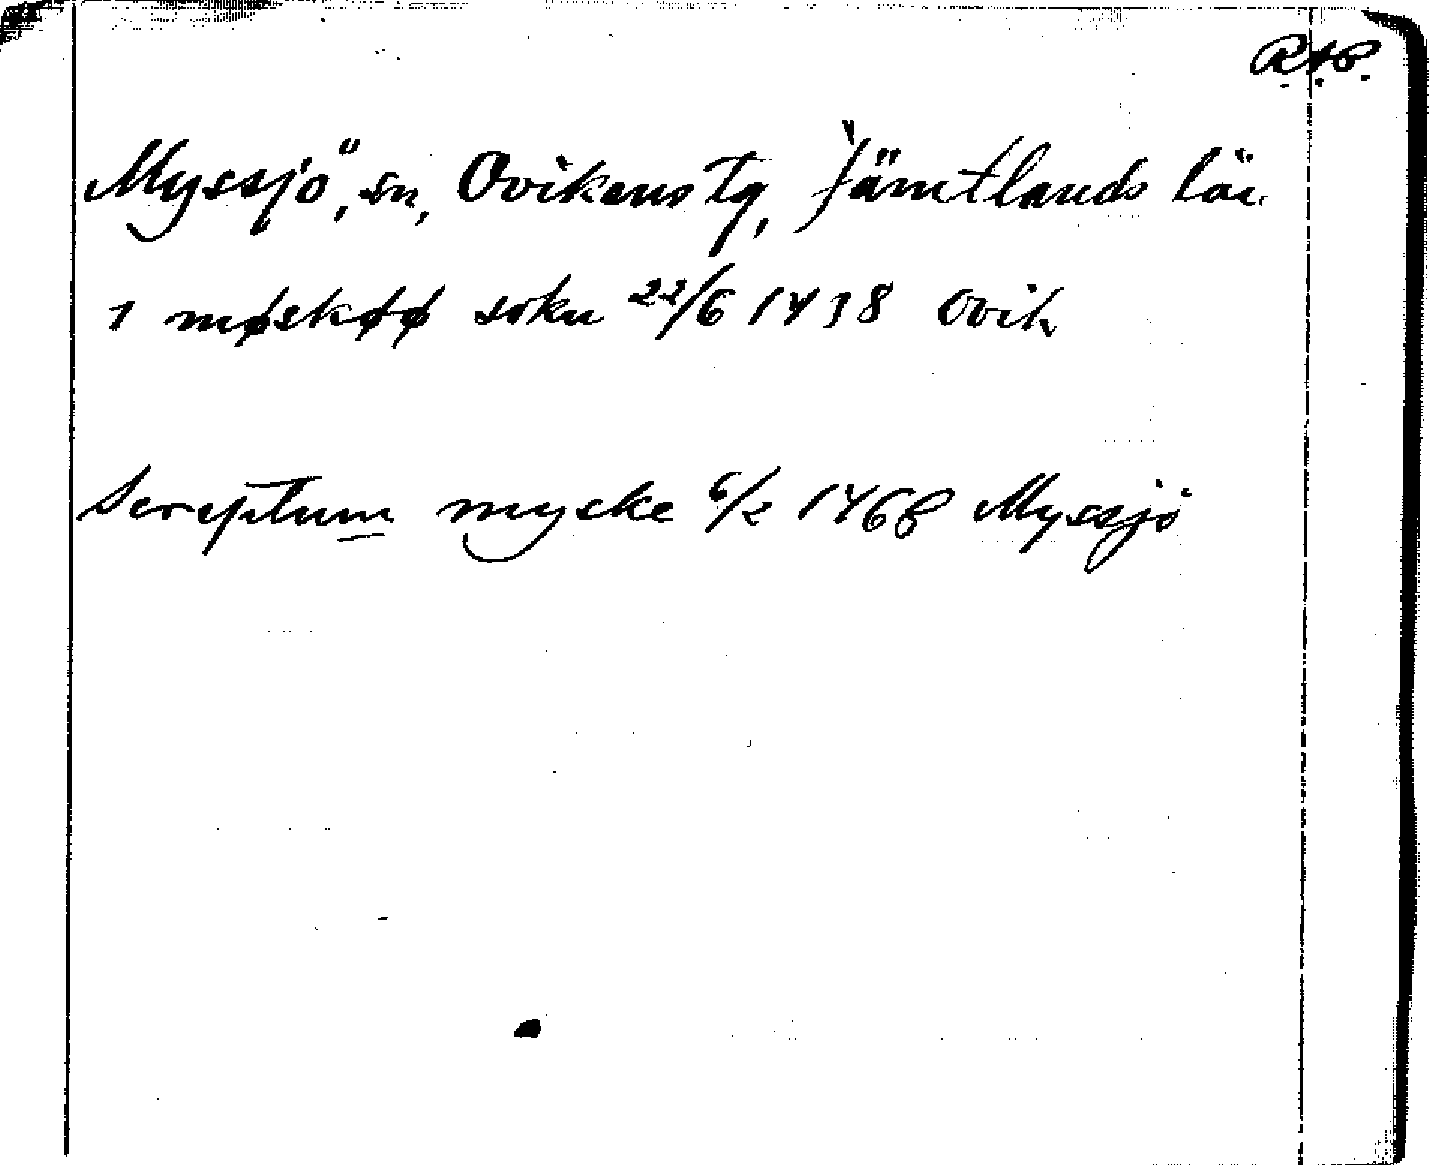 R.A.P.
Myssjö, sn, Ovikens Tg, Jämtlands län
1 møskøø sokn 22/6 1438 Ovik
Screptum mycke 6/2 1468 Myssjö